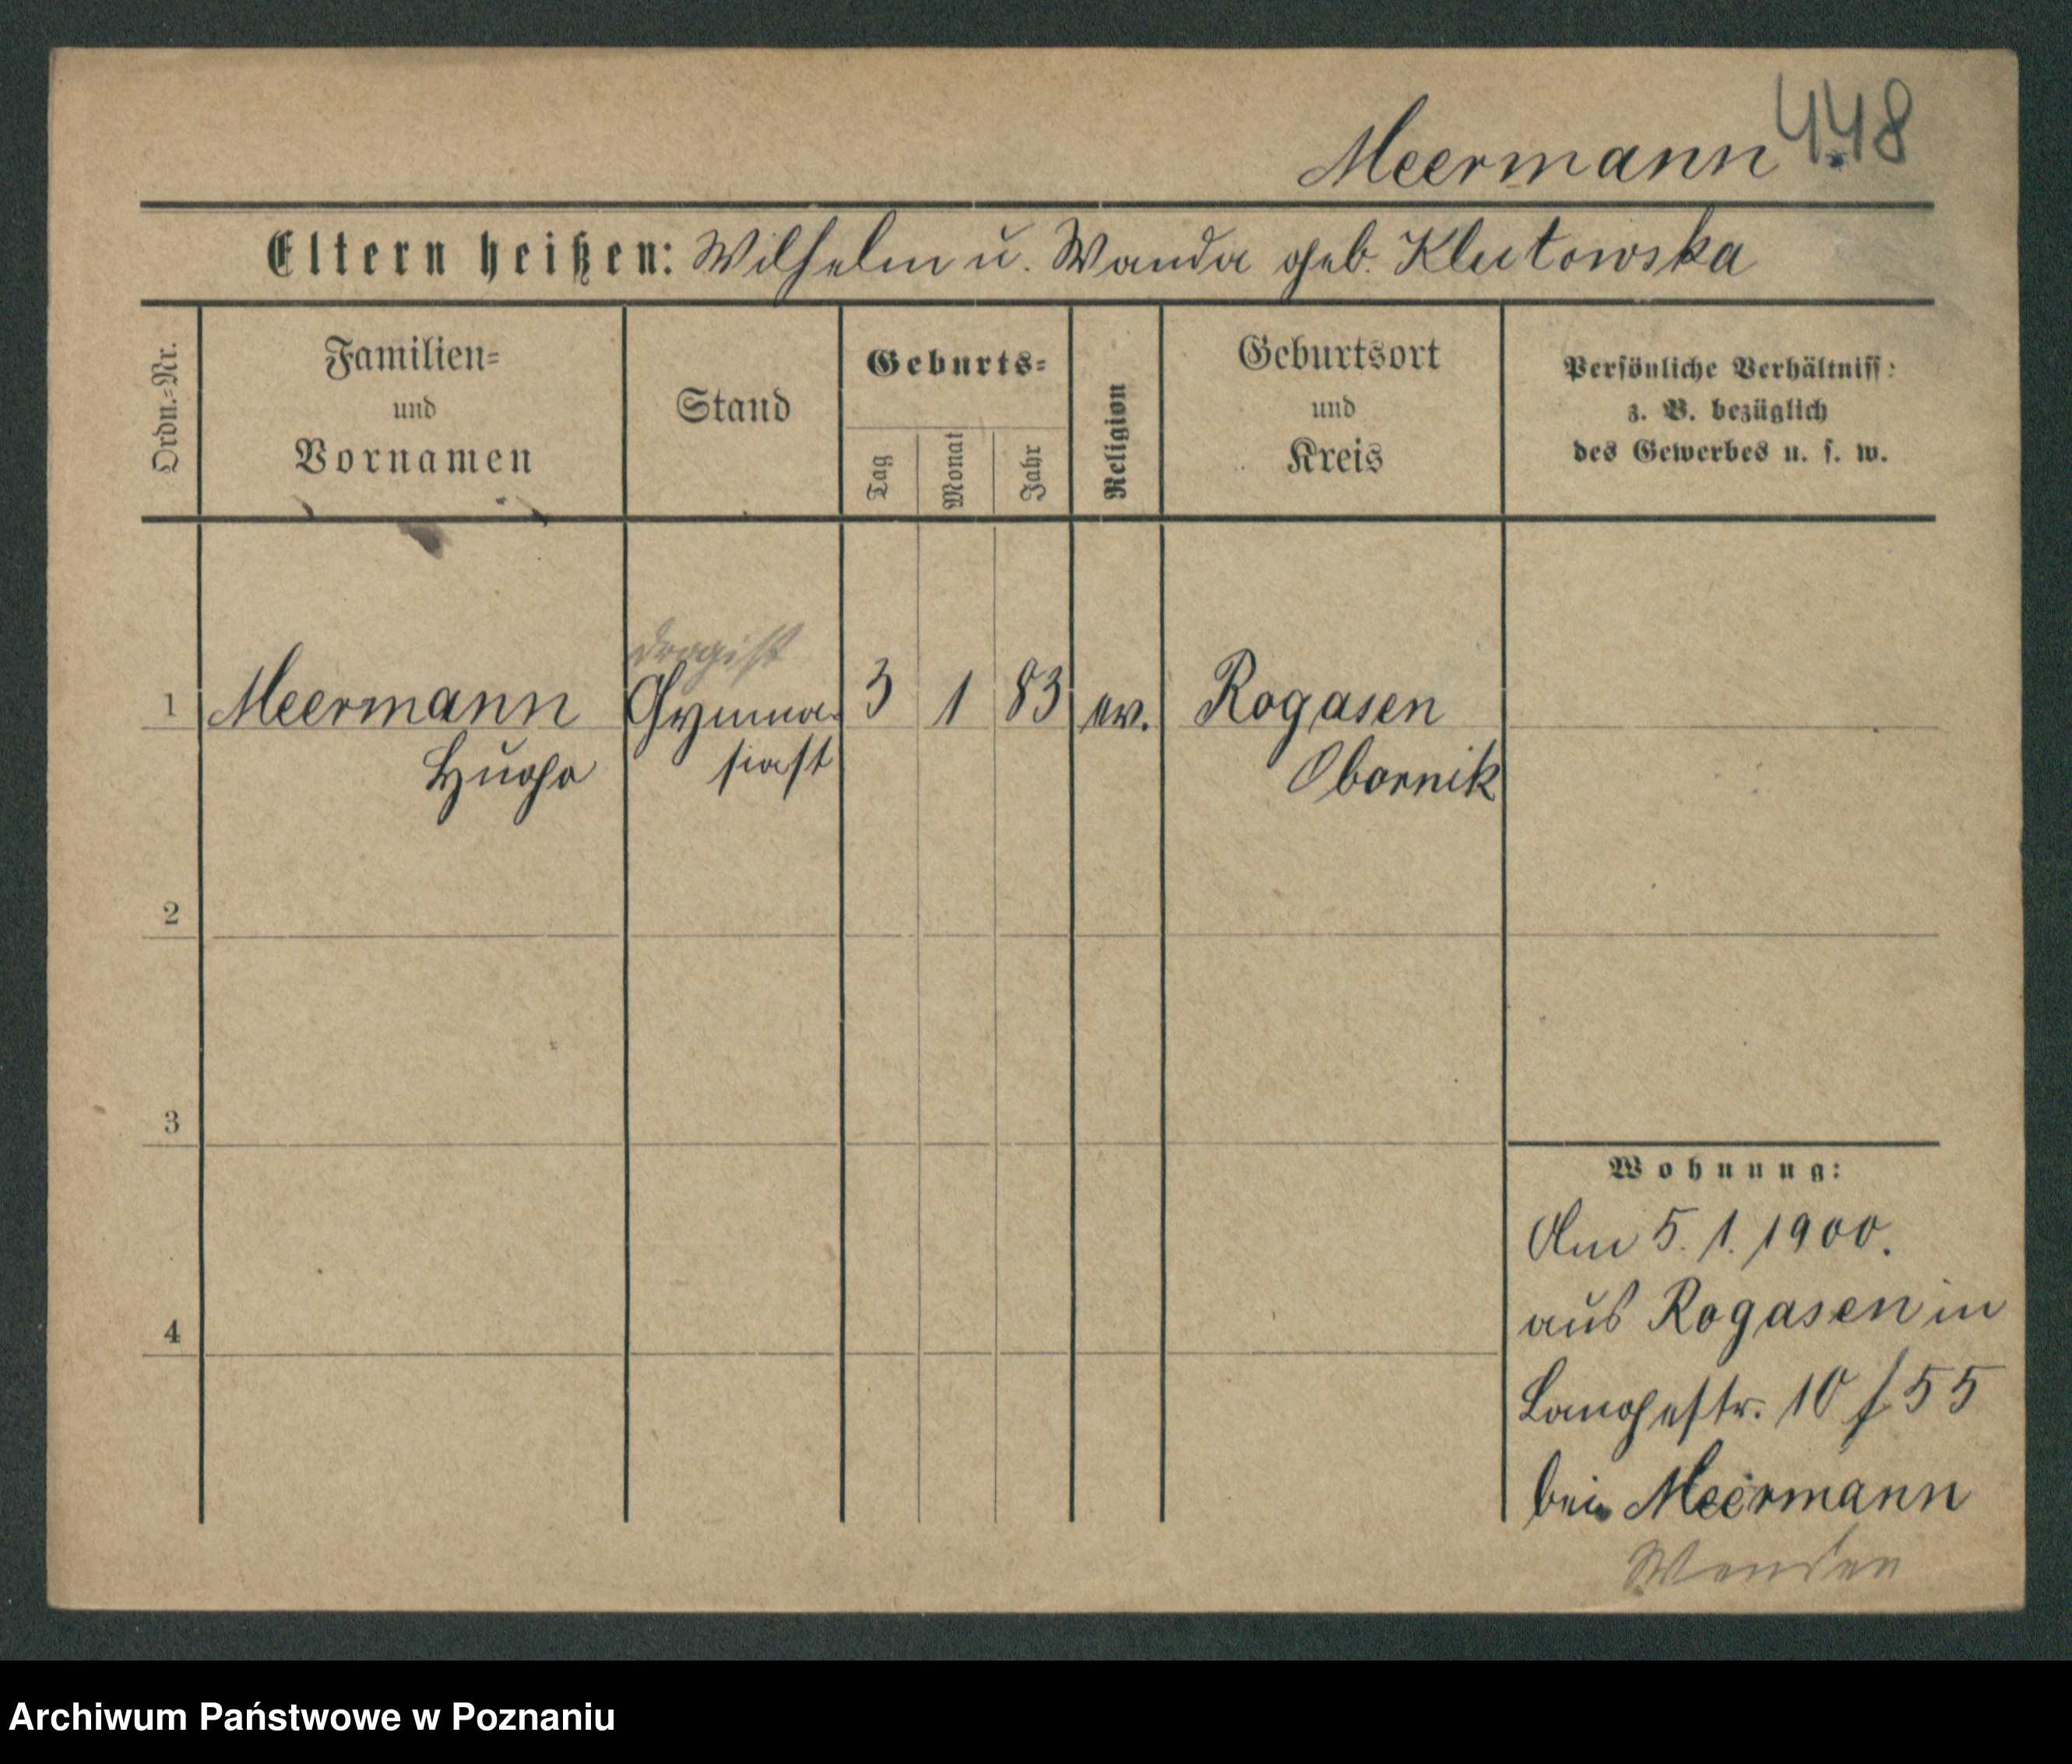 Meermann 448
Eltern heißen: Wilhelm u. Wanda geb. Klutowska
Ordn.=Nr.
Familien=
und
Vornamen
Stand
Geburts=
Tag
Monat
Jahr
Religion
Geburtsort
und
Kreis
Persönliche Verhältniss:
z. B. bezüglich
des Gewerbes u. s. w.
Drogist
1 Meermann Gymna- 3 1 83 ev. Rogasen
Hugo siast Obornik
2
3
4
Wohnung:
Am 5. 1. 1900.
aus Rogasen in
Langestr. 10 f. 55
bei Meermann
Wenden
Archiwum Państwowe w Poznaniu